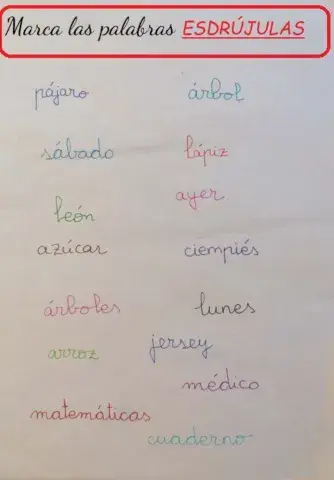 Marca las palabras ESDRÚJULAS
pájaro árbol
sábado lápiz
ayer
león
azúcar ciempiés
árboles lunes
arroz jersey
médico
matemáticas
cuaderno